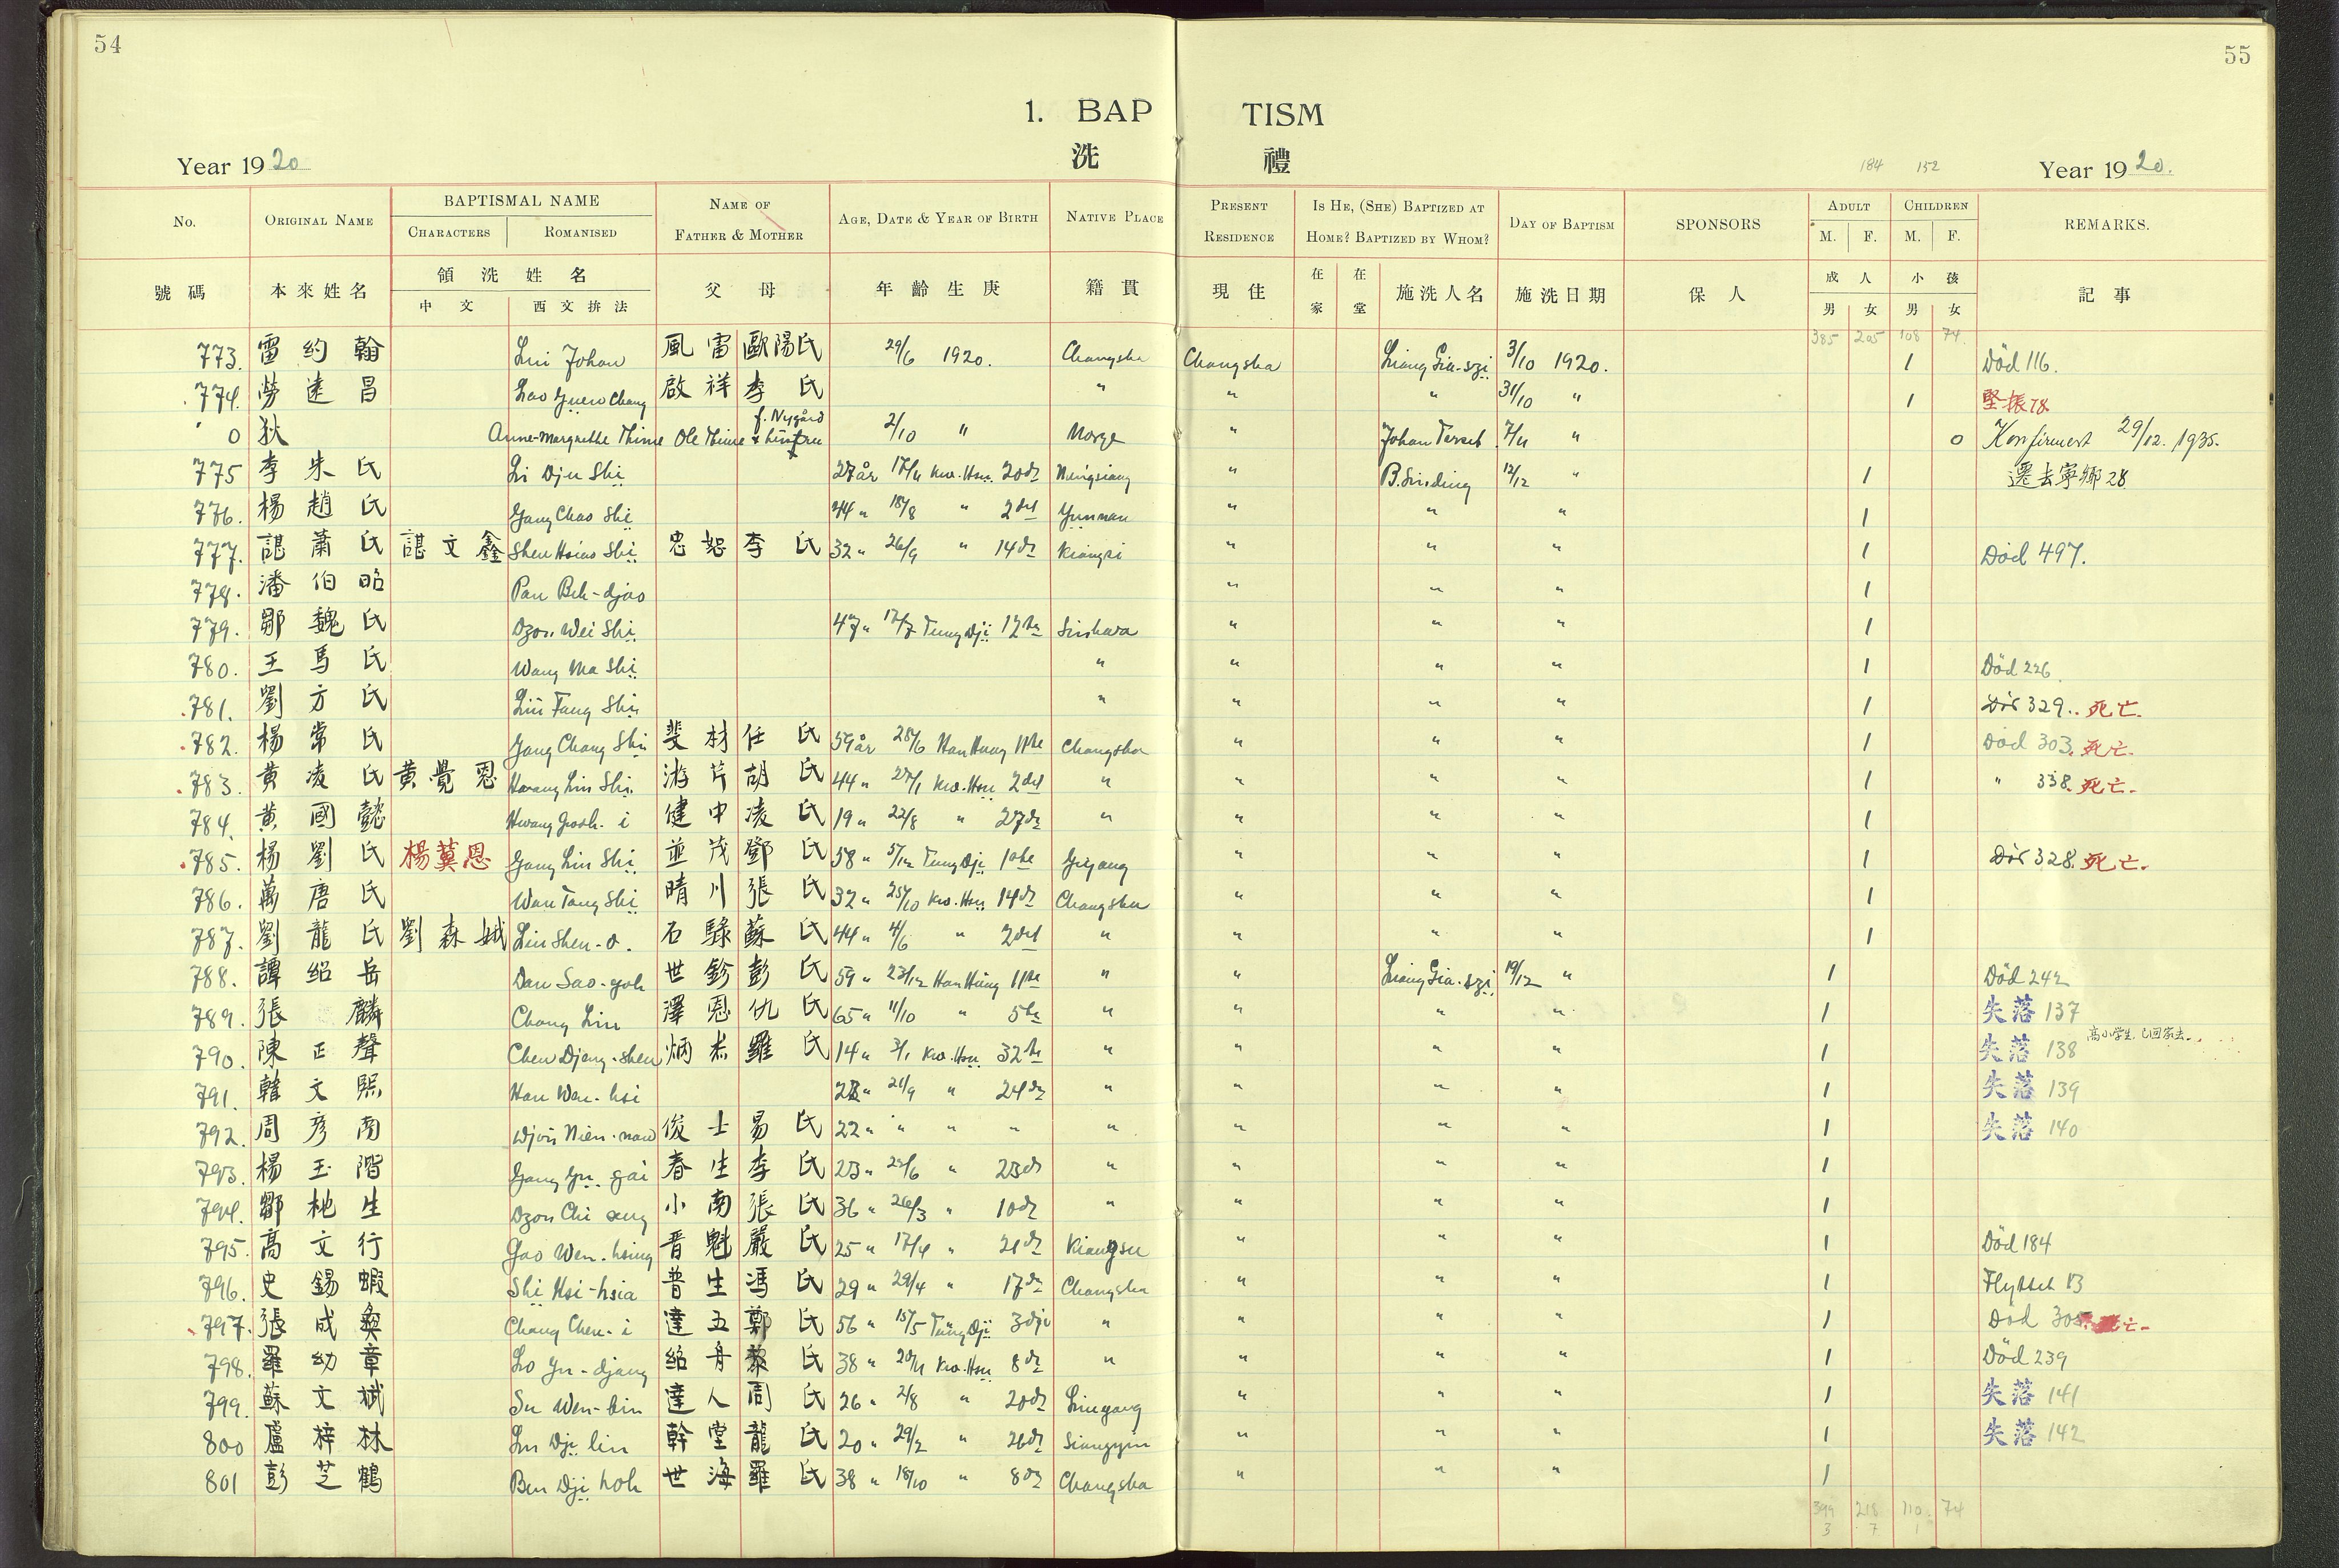 54
55
1. BAP TISM
洗 禮
184 152
Year 1920
Year 1920.
No. ORIGINAL NAME BAPTISMAL NAME CHARACTERS ROMANISED NAME OF FATHER & MOTHER AGE, DATE & YEAR OF BIRTH NATIVE PLACE PRESENT RESIDENCE IS HE, (SHE) BAPTIZED AT HOME? BAPTIZED BY WHOM? DAY OF BAPTISM SPONSORS ADULT M. F. CHILDREN M. F. REMARKS.
號碼 本來姓名 領洗姓名 中文 西文拚法 父母 年齡生庚 籍貫 現住 在家 在堂 施洗人名 施洗日期 保人 成人 男 女 小孩 男 女 記事
385 205 108 74.
773. 雷約翰 Lui Johan 風雷 歐陽氏 29/6 1920. Changsha Changsha Liang Gia-szi 3/10 1920. 1 Död 116.
774. 勞遠昌 Lao Yuen Chang 啟祥 李氏 " " " 31/10 " 1 堅振78
0 狄 Anne-Margrethe Thime Ole Thime & f. Nygård 2/10 " Norge " Johan Tarset 7/11 " 0 Konfirmert 29/12. 1935.
775 李朱氏 Li Dju Shi 27 år 17/11 Kw. Hsu 20de Ningsiang " B. Sinding 12/12 " 1 遷去寧鄉28
776. 楊趙氏 Yang Chao Shi 44 " 18/8 " 2det Yunnan " " " 1
777. 諶蕭氏 諶文鑫 Shen Hsiao Shi 忠恕 李氏 32 " 26/9 " 14de Kiangsi " " " 1 Död 497.
778. 潘伯昭 Pan Beh-djao " " " 1
779. 鄒魏氏 Dzou Wei Shi 47 " 17/7 Tung Dji 12te Sinhwa " " " 1
780. 王馬氏 Wang Ma Shi " " " " 1 Död 226.
781. 劉方氏 Liu Fang Shi " " " " 1 Dör 329.. 死亡.
782. 楊常氏 Yang Chang Shi 斐材 任氏 59 år 28/6 Han Hung 11te Changsha " " " 1 Död 303. 死亡.
783. 黄凌氏 黄覺恩 Hwang Lin Shi 游芹 胡氏 44 " 27/1 Kw. Hsu 2det " " " " 1 " 338. 死亡.
784. 黄國懿 Hwang Gwoh-i 健中 凌氏 19 " 22/8 " 27de " " " " 1
785. 楊劉氏 楊蓂恩 Yang Liu Shi 並茂 鄧氏 58 " 5/12 Tung Dji 1ste Yiyang " " " 1 Dör 328. 死亡.
786. 萬唐氏 Wan Tang Shi 晴川 張氏 32 " 25/10 Kw. Hsu 14de Changsha " " " 1
787. 劉龍氏 劉森娥 Liu Shen-o. 石騄 蘇氏 44 " 4/6 " 2det " " " " 1
788. 譚紹岳 Dan Sao-yoh 世鈐 彭氏 59 " 23/12 Han Hung 11te " " Liang Gia-szi 19/12 " 1 Död 242
789. 張麟 Chang Lin 澤恩 仇氏 65 " 11/10 " 5te " " " " 1 失落 137
790. 陳正聲 Chen Djeng-shen 炳杰 羅氏 14 " 3/1 Kw. Hsu 32te " " " " 1 失落 138 高小学生,已回家去.
791. 韓文熙 Han Wen-hsi 23 " 21/9 " 24de " " " " 1 失落 139
792. 周彥南 Djou Nien-nan 俊士 易氏 22 " " " " " " " " 1 失落 140
793. 楊玉階 Yang Yu-gai 春生 李氏 23 " 22/6 " 23de " " " " 1
794. 鄒杝生 Dzou Chi seng 小南 張氏 36 " 26/3 " 10de " " " " 1
795. 高文行 Gao Wen-hsing 晋魁 嚴氏 25 " 17/4 " 21de Kiangsu " " " 1 Död 184
796. 史錫蝦 Shi Hsi-hsia 普生 馮氏 29 " 29/4 " 17de Changsha " " " 1 Flyttet 13
797. 張成彝 Chang Chen-i 達五 鄭氏 56 " 15/5 Tung Dji 3dje " " " " 1 Död 305. 死亡.
798. 羅幼章 Lo Yu-djang 紹舟 黎氏 38 " 20/11 Kw. Hsu 8de " " " " 1 Död 239
799. 蘇文斌 Su Wen-bin 達人 周氏 26 " 2/8 " 20de Liuyang " " " 1 失落 141
800 盧梓林 Lu Dji lin 幹堂 龍氏 20 " 29/2 " 26de Siangyin " " " 1 失落 142
801 彭芝鶴 Ben Dji hoh 世海 羅氏 38 " 18/10 " 8de Changsha " " " 1
399 218 110. 74
3 7 1